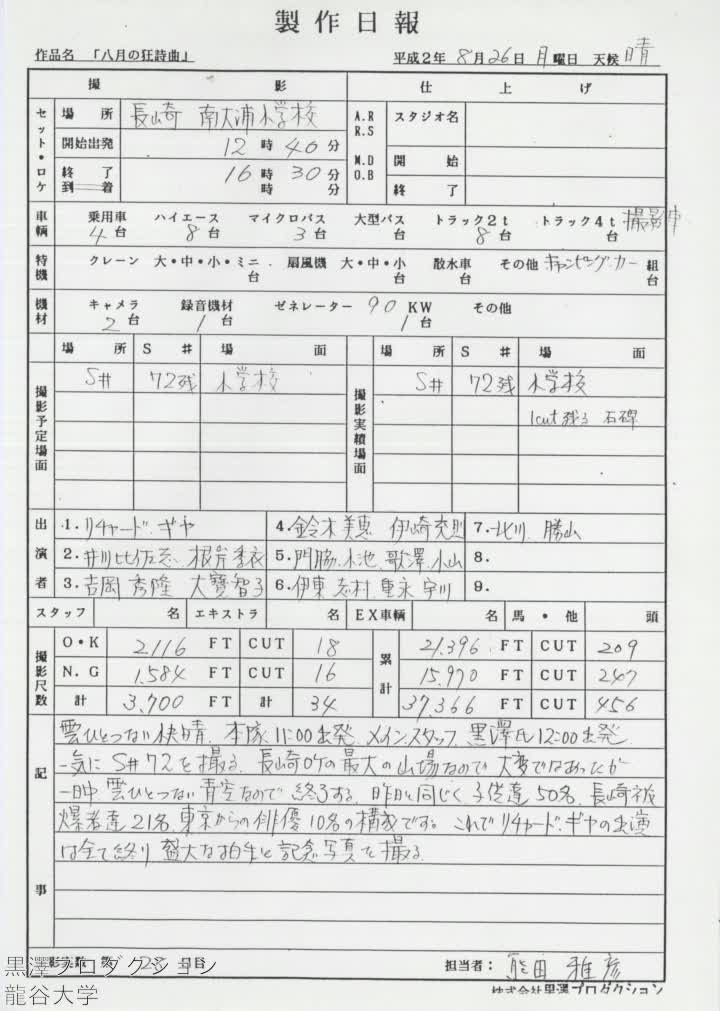 製作日報
作品名 「八月の狂詩曲」 平成2年 8月26日 月曜日 天候 晴
撮影 仕上げ
セット・ロケ 場所 長崎 南大浦小学校 A.R R.S スタジオ名
開始出発 12時40分 M.D O.B 開始
終了 16時30分 終了
到着 時 分
車輌 乗用車 4台 ハイエース 8台 マイクロバス 3台 大型バス 台 トラック2t 8台 トラック4t 台 撮影中
特機 クレーン 大・中・小・ミニ 台 扇風機 大・中・小 台 散水車 台 その他 キャンピングカー 組 台
機材 キャメラ 2台 録音機材 1台 ゼネレーター 90KW 1台 その他
場所 S# 場面 場所 S# 場面
撮影予定場面 S# 72残 小学校 撮影実績場面 S# 72残 小学校
1cut残る 石碑
出演者 1. リチャード・ギヤ 4. 鈴木美恵 伊崎充則 7. 北川 勝山
2. 井川比佐志 根岸季衣 5. 門脇、小池、歌澤、小山 8.
3. 吉岡秀隆 大寶智子 6. 伊東 志村 重永 宇川 9.
スタッフ 名 エキストラ 名 EX車輌 名 馬・他 頭
撮影尺数 O・K 2,116 FT CUT 18 累計 21,396 FT CUT 209
N.G 1,584 FT CUT 16 15,970 FT CUT 247
計 3,700 FT 計 34 37,366 FT CUT 456
記事
雲ひとつない快晴、本隊11:00出発、メインスタッフ、黒澤氏12:00出発、
一気にS#72を撮る。長崎ロケの最大の山場なので大変ではあったが
一日中、雲ひとつない青空なので終了する。昨日と同じく子供達50名、長崎被
爆者達21名、東京からの俳優10名の構成です。これでリチャード・ギヤの出演
は全て終り 盛大な拍手と記念写真を撮る。
影実数 第 28 日目 担当者: 熊田 雅彦
株式会社黒澤プロダクション
黒澤プロダクション
龍谷大学